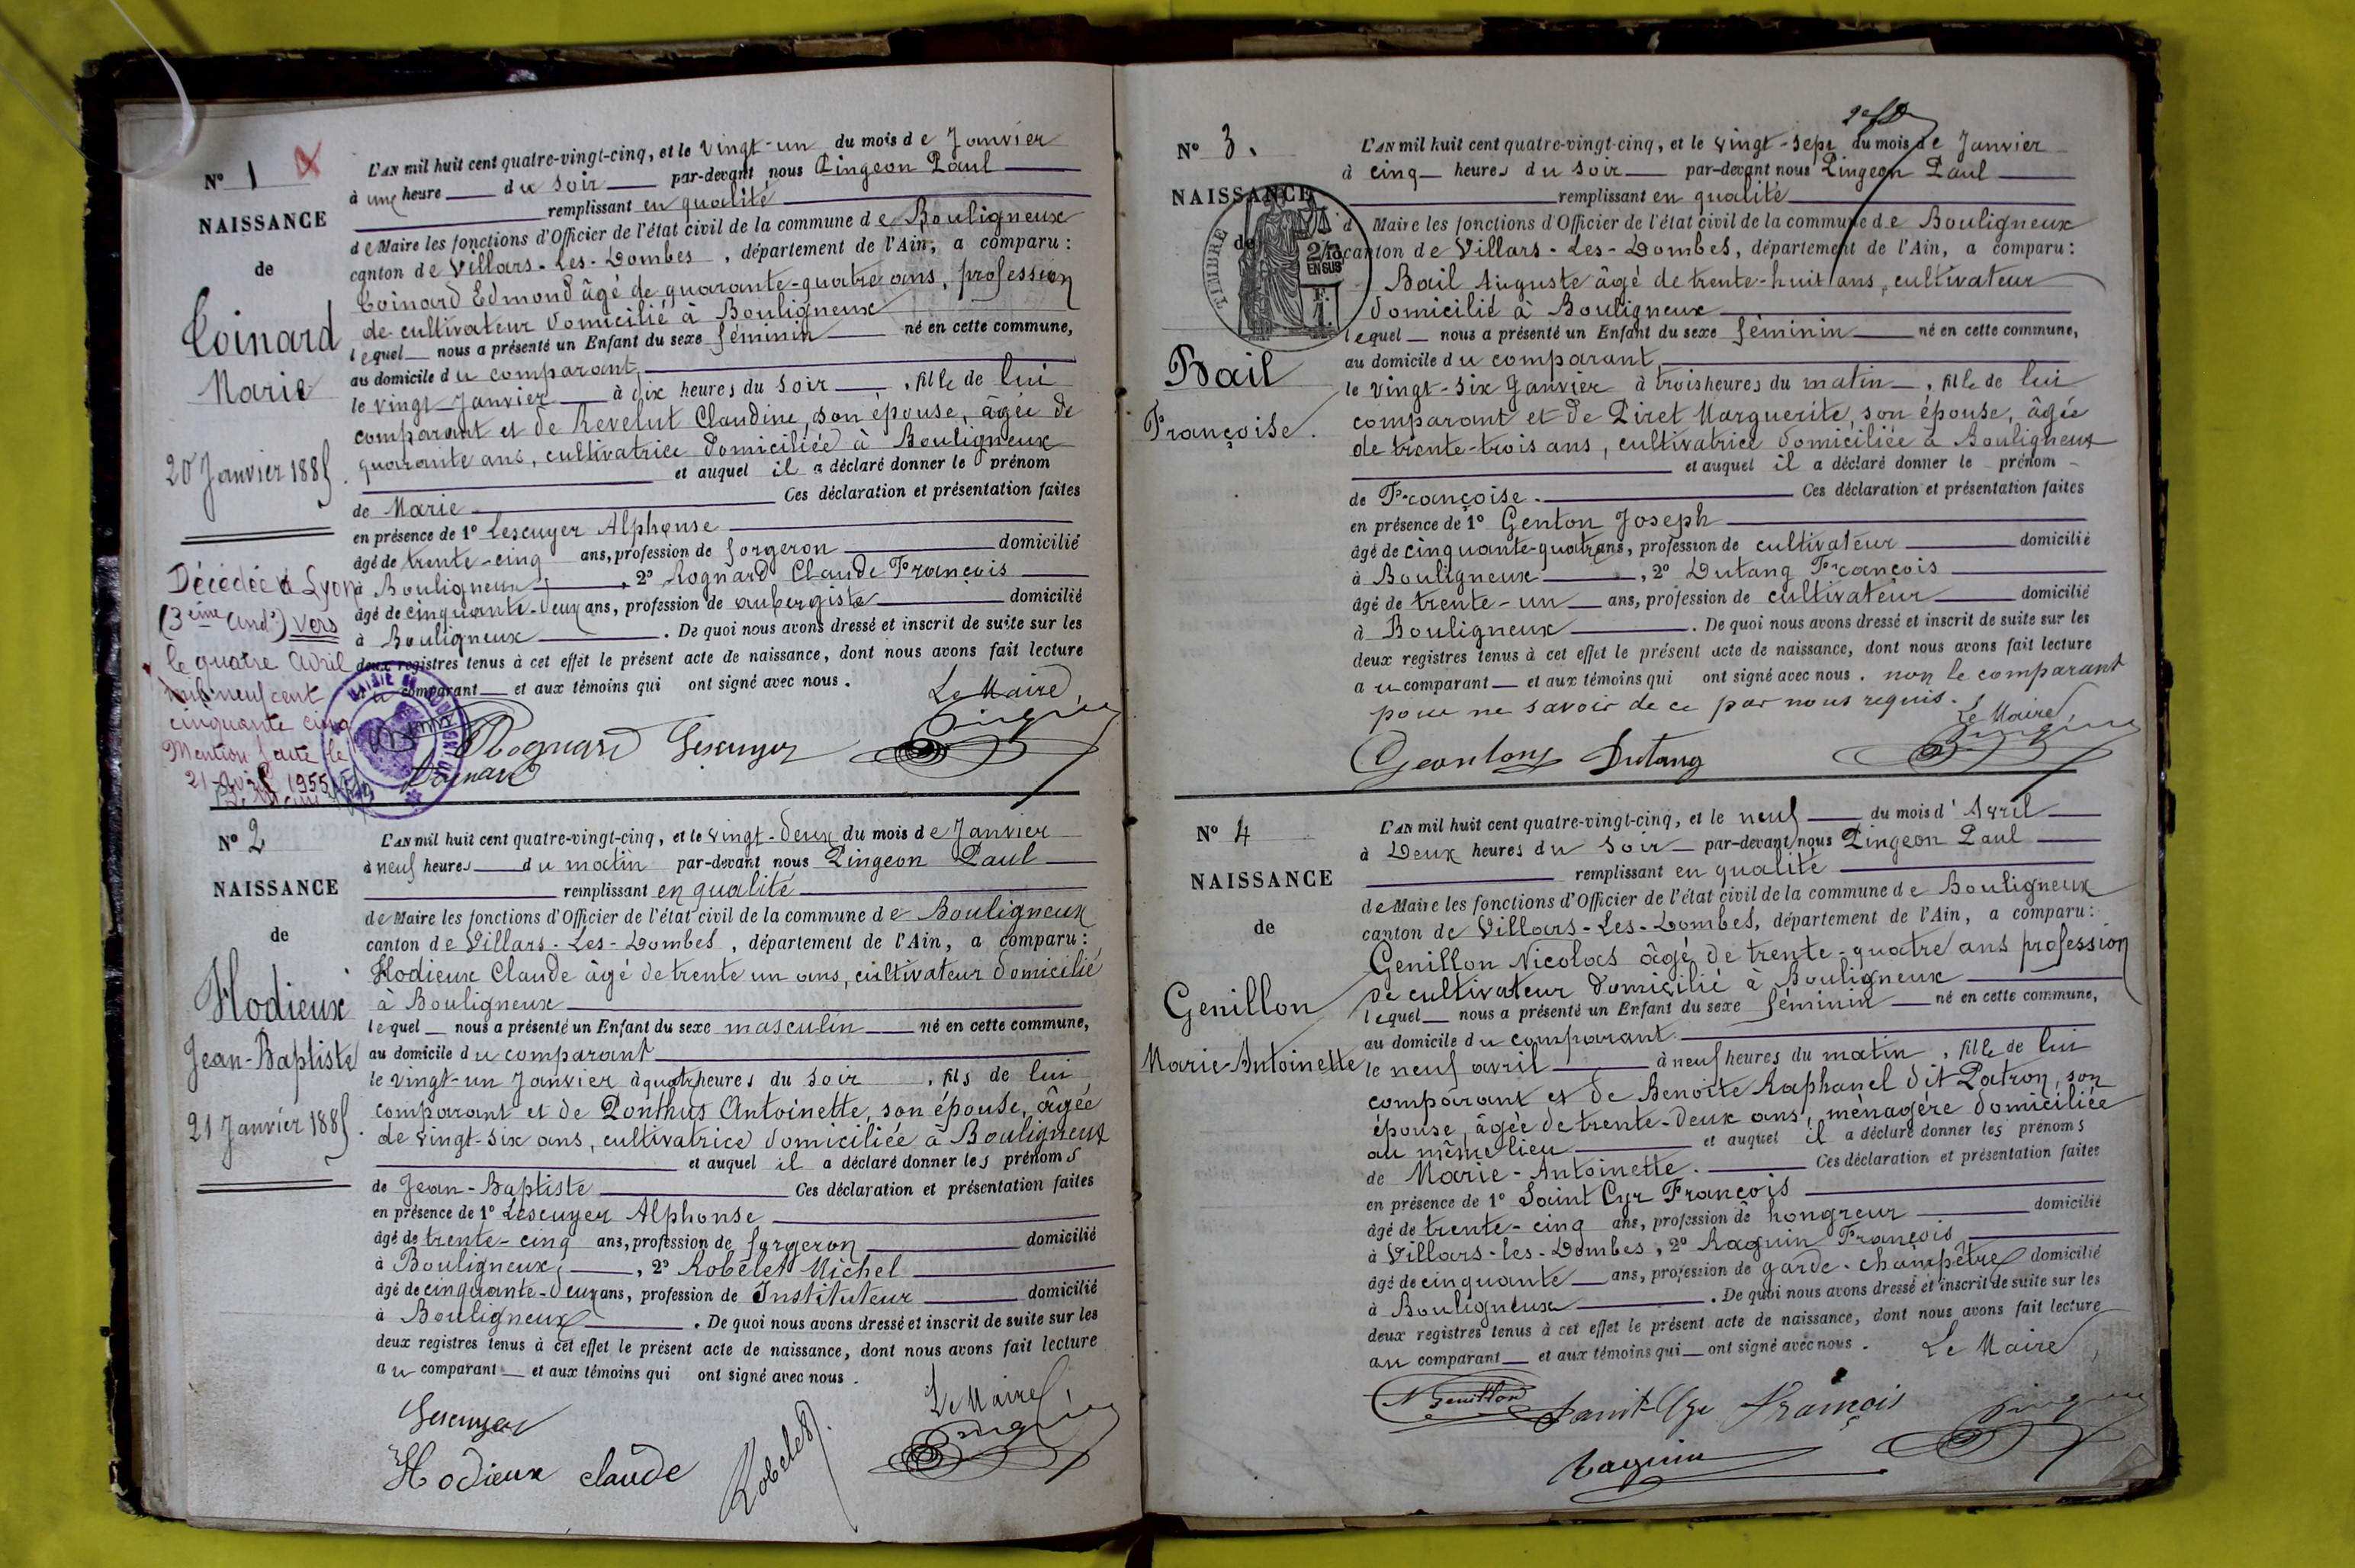 N° 1
NAISSANCE
de
Coinard
Marie
20 Janvier 1885.
Décédée à Lyon
(3ème Arrd.t) vers
le quatre Avril
mil neuf cent
cinquante cinq
Mention faite le
21 Avril 1955
L'AN mil huit cent quatre-vingt-cinq, et le vingt-un du mois de Janvier
à une heure du soir par-devant nous Pingeon Paul
remplissant en qualité
de Maire les fonctions d'Officier de l'état civil de la commune de Bouligneux
canton de Villars-Les-Dombes, département de l'Ain, a comparu :
Coinard Edmond âgé de quarante-quatre ans, profession
de cultivateur domicilié à Bouligneux
lequel nous a présenté un Enfant du sexe féminin né en cette commune,
au domicile du comparant,
le vingt Janvier à dix heures du soir, fille de lui
comparant et de Revelut Claudine, son épouse, âgée de
quarante ans, cultivatrice domiciliée à Bouligneux
et auquel il a déclaré donner le prénom
de Marie Ces déclaration et présentation faites
en présence de 1° Lescuyer Alphonse
âgé de trente-cinq ans, profession de forgeron domicilié
à Bouligneux, 2° Rognard Claude François
âgé de cinquante-deux ans, profession de aubergiste domicilié
à Bouligneux. De quoi nous avons dressé et inscrit de suite sur les
deux registres tenus à cet effet le présent acte de naissance, dont nous avons fait lecture
au comparant et aux témoins qui ont signé avec nous.
Le Maire,
Rognard Lescuyer Pingeon
Coinard
N° 2
NAISSANCE
de
Hodieux
Jean-Baptiste
21 Janvier 1885.
L'AN mil huit cent quatre-vingt-cinq, et le vingt-deux du mois de Janvier
à neuf heures du matin par-devant nous Pingeon Paul
remplissant en qualité
de Maire les fonctions d'Officier de l'état civil de la commune de Bouligneux
canton de Villars-Les-Dombes, département de l'Ain, a comparu :
Hodieux Claude âgé de trente un ans, cultivateur domicilié
à Bouligneux
lequel nous a présenté un Enfant du sexe masculin né en cette commune,
au domicile du comparant
le vingt-un Janvier à quatre heures du soir, fils de lui
comparant et de Ponthus Antoinette, son épouse, âgée
de vingt-six ans, cultivatrice domiciliée à Bouligneux
et auquel il a déclaré donner les prénoms
de Jean-Baptiste Ces déclaration et présentation faites
en présence de 1° Lescuyer Alphonse
âgé de trente-cinq ans, profession de forgeron domicilié
à Bouligneux, 2° Robelet Michel
âgé de cinquante-deux ans, profession de Instituteur domicilié
à Bouligneux. De quoi nous avons dressé et inscrit de suite sur les
deux registres tenus à cet effet le présent acte de naissance, dont nous avons fait lecture
au comparant et aux témoins qui ont signé avec nous.
Le Maire,
Lescuyer Pingeon
Hodieux claude Robelet
N° 3.
NAISSANCE
de
TIMBRE
2/10
EN SUS
Bail
Françoise.
L'AN mil huit cent quatre-vingt-cinq, et le vingt-sept du mois de Janvier
à cinq heures du soir par-devant nous Pingeon Paul
remplissant en qualité
d Maire les fonctions d'Officier de l'état civil de la commune de Bouligneux
canton de Villars-Les-Dombes, département de l'Ain, a comparu :
Bail Auguste âgé de trente-huit ans, cultivateur
domicilié à Bouligneux
lequel nous a présenté un Enfant du sexe féminin né en cette commune,
au domicile du comparant
le vingt-six Janvier à trois heures du matin, fille de lui
comparant et de Piret Marguerite, son épouse, âgée
de trente-trois ans, cultivatrice domiciliée à Bouligneux
et auquel il a déclaré donner le prénom
de Françoise. Ces déclaration et présentation faites
en présence de 1° Genton Joseph
âgé de cinquante-quatre ans, profession de cultivateur domicilié
à Bouligneux, 2° Dutang François
âgé de trente-un ans, profession de cultivateur domicilié
à Bouligneux. De quoi nous avons dressé et inscrit de suite sur les
deux registres tenus à cet effet le présent acte de naissance, dont nous avons fait lecture
au comparant et aux témoins qui ont signé avec nous. non le comparant
pour ne savoir de ce par nous requis.
Le Maire,
Geanton Dutang Pingeon
N° 4
NAISSANCE
de
Genillon
Marie-Antoinette
L'AN mil huit cent quatre-vingt-cinq, et le neuf du mois d'Avril
à Deux heures du soir par-devant nous Pingeon Paul
remplissant en qualité
de Maire les fonctions d'Officier de l'état civil de la commune de Bouligneux
canton de Villars-Les-Dombes, département de l'Ain, a comparu :
Genillon Nicolas âgé de trente-quatre ans profession
de cultivateur domicilié à Bouligneux
lequel nous a présenté un Enfant du sexe féminin né en cette commune,
au domicile du comparant
le neuf avril à neuf heures du matin, fille de lui
comparant et de Benoite Raphanel dit Patron, son
épouse, âgée de trente-deux ans, ménagère domiciliée
au même lieu et auquel il a déclaré donner les prénoms
de Marie-Antoinette. Ces déclaration et présentation faites
en présence de 1° Saint Cyr François
âgé de trente-cinq ans, profession de hongreur domicilié
à Villars-les-Dombes, 2° Raguin François
âgé de cinquante ans, profession de garde-champêtre domicilié
à Bouligneux. De quoi nous avons dressé et inscrit de suite sur les
deux registres tenus à cet effet le présent acte de naissance, dont nous avons fait lecture
au comparant et aux témoins qui ont signé avec nous.
Le Maire,
N Genillon Saint-Cyr François Pingeon
Raguin